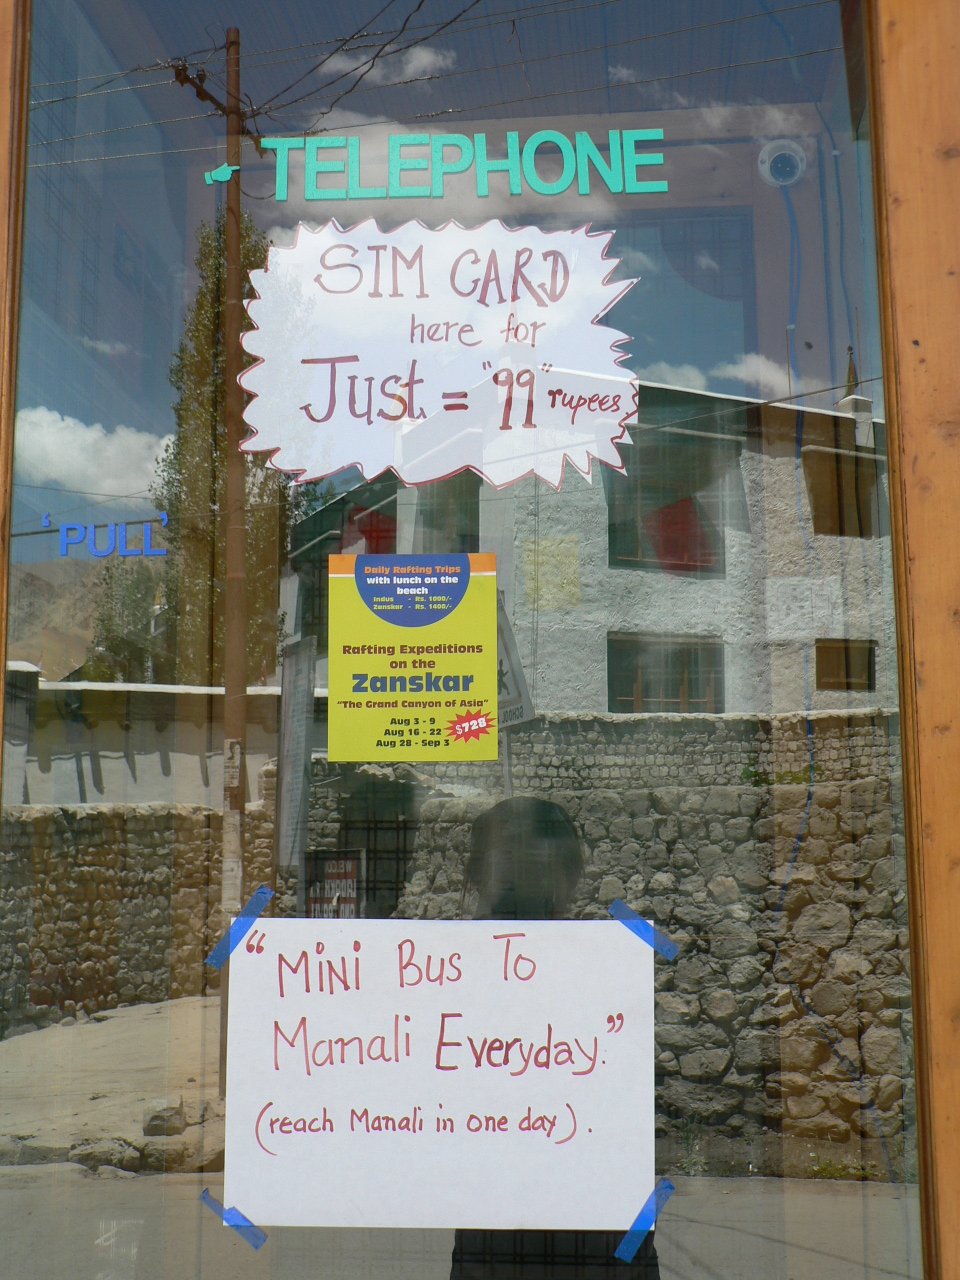 TELEPHONE
SIM CARD
here for
Just = "99" rupees.
'PULL'
Daily Rafting Trips
with lunch on the
beach
Indus - Rs. 1000/-
Zanskar - Rs. 1400/-
Rafting Expeditions
on the
Zanskar
"The Grand Canyon of Asia"
Aug 3 - 9
Aug 16 - 22
Aug 28 - Sep 3
$728
SCHOOL
"Mini Bus To
Manali Everyday."
(reach Manali in one day).